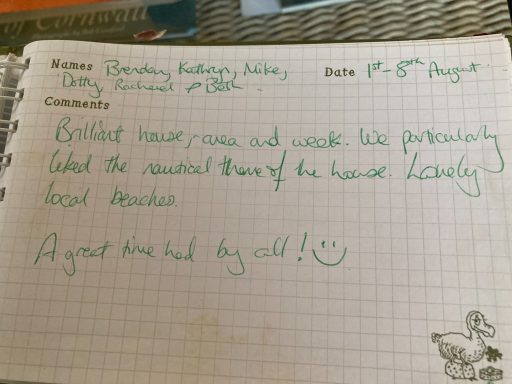 of Cornwall
Names Brendan, Kathryn, Mike, Date 1st - 8th August.
Dotty, Rachael & Beth.
Comments
Brilliant house, area and week. We particularly
liked the nautical theme of the house. Lovely
local beaches.
A great time had by all! :)